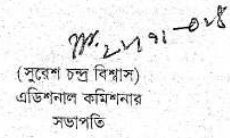 (সুরেশ চন্দ্র বিশ্বাস)
এডিশনাল কমিশনার
সভাপতি